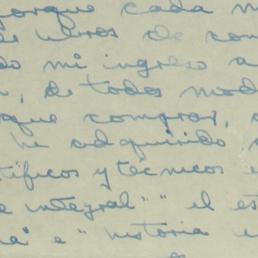 porque cada m
de libros de com
do mi ingreso a
, de todos mod
que compras,
he adquirido
tíficos y técnicos e
e integral" " el es
a" e " historia e